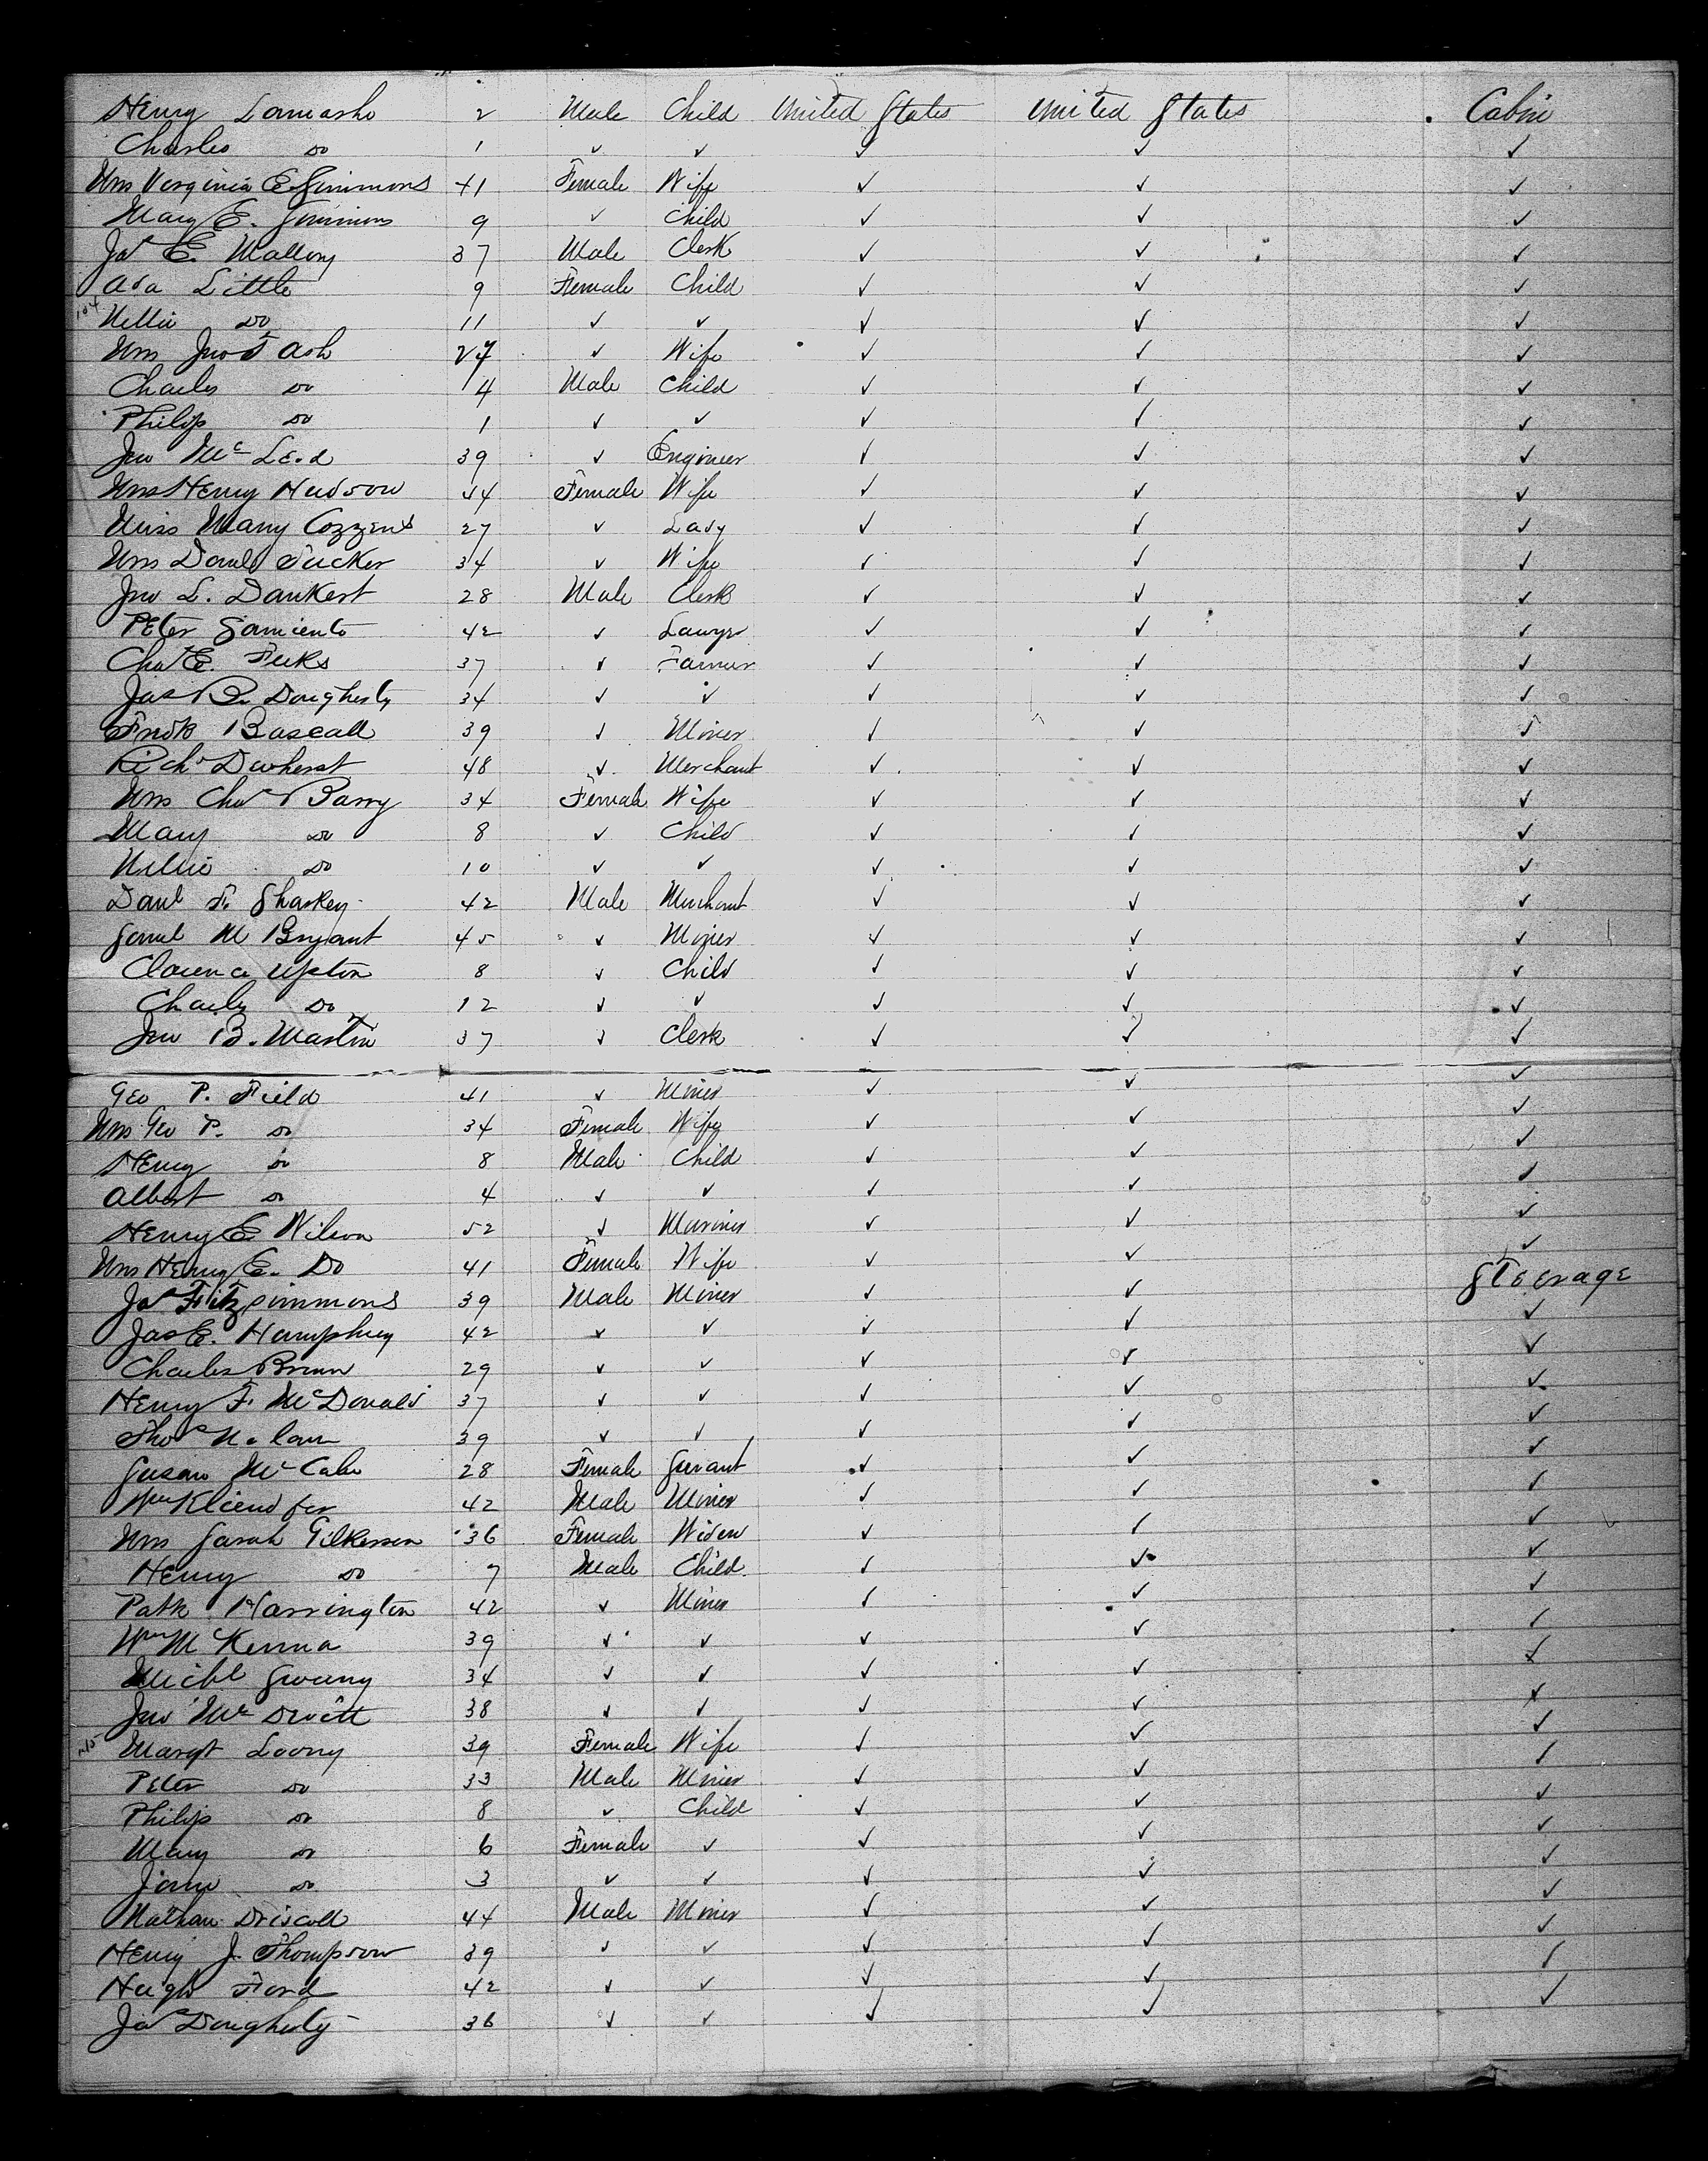 Henry Lamasho 2 Male Child United States United States Cabin
Charles Do 1 ✓ ✓ ✓ ✓ ✓
Mrs Virginia E. Simmons 41 Female Wife ✓ ✓ ✓
Mary E. Simmons 9 ✓ Child ✓ ✓ ✓
Jas E. Mallory 37 Male Clerk ✓ ✓ ✓
Ada Little 9 Female Child ✓ ✓ ✓
104 Nellie Do 11 ✓ ✓ ✓ ✓ ✓
Mrs Jno T Ash 27 ✓ Wife ✓ ✓ ✓
Charles Do 4 Male Child ✓ ✓ ✓
Philip Do 1 ✓ ✓ ✓ ✓ ✓
Jno McLeod 39 ✓ Engineer ✓ ✓ ✓
Mrs Henry Hudson 44 Female Wife ✓ ✓ ✓
Miss Mary Cozzens 27 ✓ Lady ✓ ✓ ✓
Mrs Danl Tucker 34 ✓ Wife ✓ ✓ ✓
Jno L. Dankert 28 Male Clerk ✓ ✓ ✓
Peter Sarmiento 42 ✓ Lawyer ✓ ✓ ✓
Chas E. Feeks 37 ✓ Farmer ✓ ✓ ✓
Jas B. Dougherty 34 ✓ ✓ ✓ ✓ ✓
Fredk Bascall 39 ✓ Miner ✓ ✓ ✓
Richd Dewherst 48 ✓ Merchant ✓ ✓ ✓
Mrs Chas Barry 34 Female Wife ✓ ✓ ✓
Mary Do 8 ✓ Child ✓ ✓ ✓
Nellie Do 10 ✓ ✓ ✓ ✓ ✓
Danl F. Sharkey 42 Male Merchant ✓ ✓ ✓
Saml M Bryant 45 ✓ Miner ✓ ✓ ✓
Clarence Upton 8 ✓ Child ✓ ✓ ✓
Charles Do 12 ✓ ✓ ✓ ✓ ✓
Jno B. Martin 37 ✓ Clerk ✓ ✓ ✓
Geo P. Field 41 ✓ Miner ✓ ✓ ✓
Mrs Geo P. Do 34 Female Wife ✓ ✓ ✓
Henry Do 8 Male Child ✓ ✓ ✓
Albert Do 4 ✓ ✓ ✓ ✓ ✓
Henry E. Wilson 52 ✓ Mariner ✓ ✓ ✓
Mrs Henry E. Do 41 Female Wife ✓ ✓ ✓
Jas Fitzsimmons 39 Male Miner ✓ ✓ Steerage
Jas E. Humphrey 42 ✓ ✓ ✓ ✓ ✓
Charles Brown 29 ✓ ✓ ✓ ✓ ✓
Henry F. McDonald 37 ✓ ✓ ✓ ✓ ✓
Thos Nolan 39 ✓ ✓ ✓ ✓ ✓
Susan McCabe 28 Female Servant ✓ ✓ ✓
Wm 42 Male Miner ✓ ✓ ✓
Mrs Sarah Gilkerson 36 Female Widow ✓ ✓ ✓
Henry Do 7 Male Child ✓ ✓ ✓
Patk Harrington 42 ✓ Miner ✓ ✓ ✓
Wm McKenna 39 ✓ ✓ ✓ ✓ ✓
Michl Sweeny 34 ✓ ✓ ✓ ✓ ✓
Jno McDevitt 38 ✓ ✓ ✓ ✓ ✓
Margt Loony 39 Female Wife ✓ ✓ ✓
Peter Do 33 Male Miner ✓ ✓ ✓
Philip Do 8 ✓ Child ✓ ✓ ✓
Mary Do 6 Female ✓ ✓ ✓ ✓
Jane Do 3 ✓ ✓ ✓ ✓ ✓
Nathan Driscoll 44 Male Miner ✓ ✓ ✓
Henry J. Thompson 39 ✓ ✓ ✓ ✓ ✓
Hugh Ford 42 ✓ ✓ ✓ ✓ ✓
Jas Dougherty 36 ✓ ✓ ✓ ✓ ✓